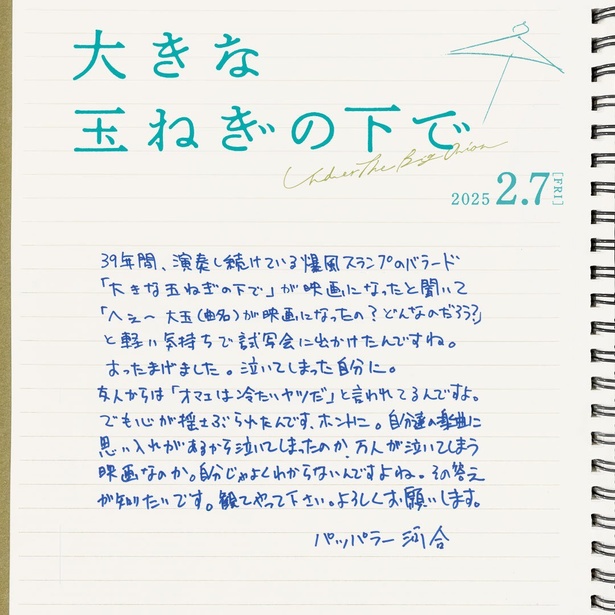 大きな
玉ねぎの下で
Under The Big Onion
2025 2.7 [FRI]
39年間、演奏し続けている爆風スランプのバラード
「大きな玉ねぎの下で」が映画になったと聞いて
「へぇ〜 大玉(曲名)が映画になったの？どんなのだろう?」
と軽い気持ちで試写会に出かけたんですね。
おったまげました。泣いてしまった自分に。
友人からは「オマエは冷たいヤツだ」と言われてるんですよ。
でも心が揺さぶられたんです、ホントに。自分達の楽曲に
思い入れがあるから泣いてしまったのか、万人が泣いてしまう
映画なのか。自分じゃよくわからないんですよね。その答え
が知りたいです。観てやって下さい。よろしくお願いします。
パッパラー河合